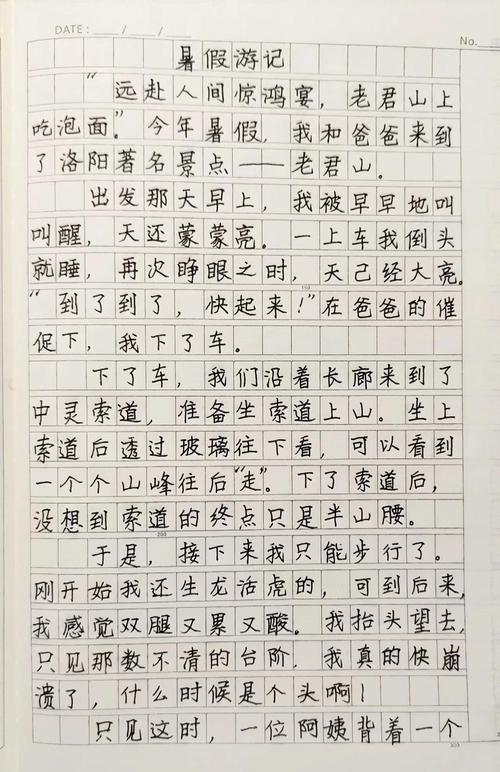 DATE: / /
No.
暑假游记
“远赴人间惊鸿宴，老君山上
吃泡面。”今年暑假，我和爸爸来到
了洛阳著名景点——老君山。
出发那天早上，我被早早地叫
叫醒，天还蒙蒙亮。一上车我倒头
就睡，再次睁眼之时，天已经大亮。
“到了到了，快起来！”在爸爸的催
促下，我下了车。
下了车，我们沿着长廊来到了
中灵索道，准备坐索道上山。坐上
索道后透过玻璃往下看，可以看到
一个个山峰往后“走”。下了索道后，
没想到索道的终点只是半山腰。
于是，接下来我只能步行了。
刚开始我还生龙活虎的，可到后来，
我感觉双腿又累又酸。我抬头望去，
只见那数不清的台阶，我真的快崩
溃了，什么时候是个头啊！
只见这时，一位阿姨背着一个